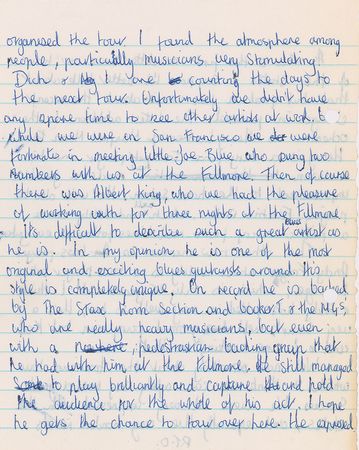 organised the tour. I found the atmosphere among
people, particularly musicians very stimulating
Dick & I are counting the days to
the next tour. Unfortunately we didn't have
any spare time to see other artists at work, b
while we were in San Francisco we were
fortunate in meeting little Joe Blue who sung two
numbers with us at the Fillmore. Then of course
there was Albert King, who we had the pleasure
of working with for three nights at the Fillmore
its difficult to describe such a great artist as
he is. In my opinion he is one of the most
original and exciting blues guitarists around. His
style is completely unique. On record he is backed
by The Stax horn section and booker T. & the M.G's
who are really heavy musicians, but even
with a pedestrian backing group that
he had with him at the Fillmore. He still managed
to play brilliantly and capture and hold
the audience for the whole of his act. I hope
he gets the chance to tour over here. He exposed